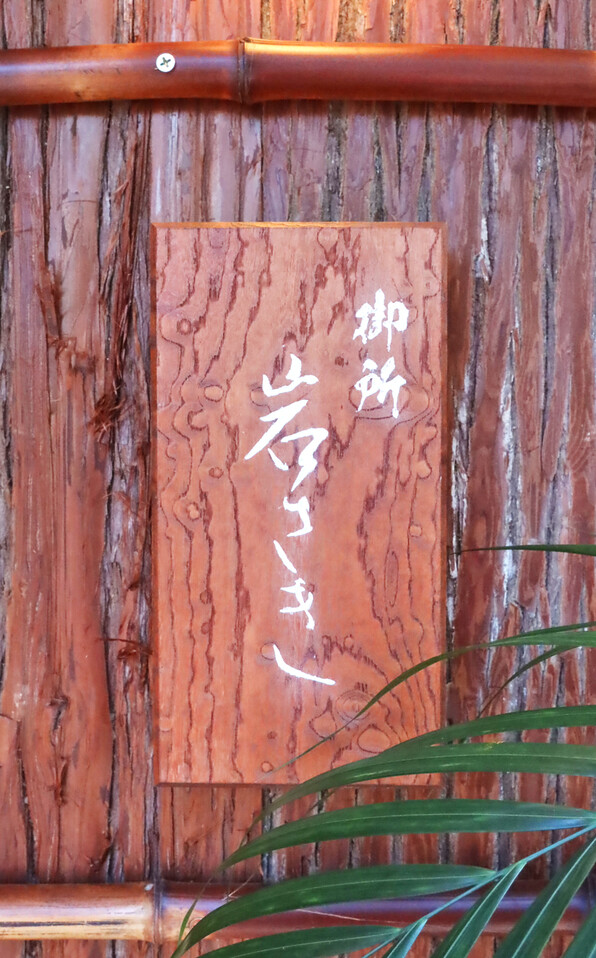 御所
岩さき